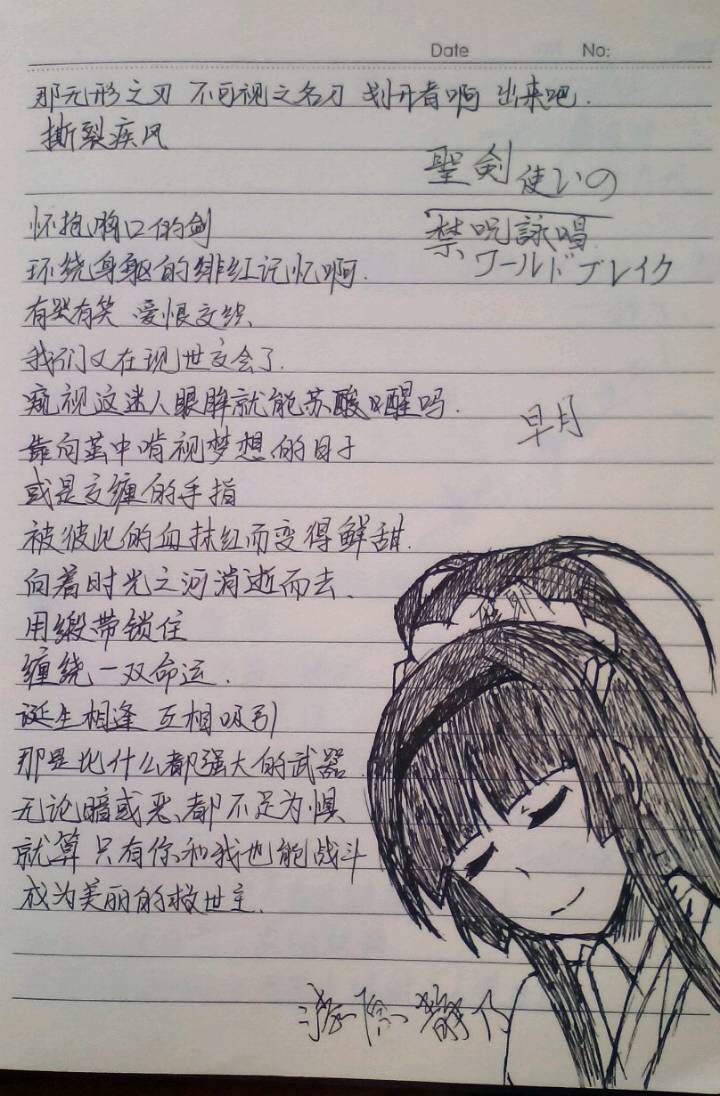 Date No:
那无形之刃 不可视之名刀 划开者啊 出来吧.
撕裂疾风
聖剣使いの
禁呪詠唱
ワールドブレイク
怀抱胸口的剑
环绕身躯的绯红记忆啊.
有哭有笑 爱恨交织
我们又在现世交会了.
窥视这迷人眼眸就能苏醒吗.
早月
靠向茧中 视梦想的日子
或是交缠的手指
被彼此的血抹红而变得鲜甜.
向着时光之河消逝而去、
用缎带锁住
缠绕一双命运.
诞生相逢 互相吸引
那是比什么都强大的武器
无论暗或恶、都不足为惧
就算只有你和我也能战斗
成为美丽的救世主.